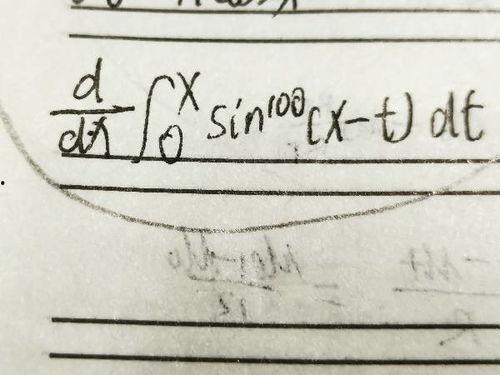 d/dx ∫₀ˣ sin¹⁰⁰(x-t) dt